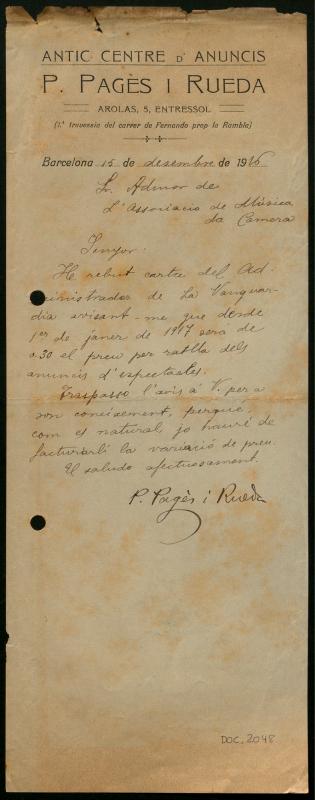 ANTIC CENTRE D'ANUNCIS
P. PAGÈS I RUEDA
AROLAS, 5, ENTRESSOL
(1.ª travessia del carrer de Fernando prop la Rambla)
Barcelona 15 de desembre de 1916
Sr. Admor de
L'Associació de Música
da Camera
Senyor:
He rebut cartre del Ad-
ministrador de La Vanguar-
dia avisant-me que desde
1er de janer de 1917 será de
0,30 el preu per ratlla dels
anuncis d'espectacles.
Traspasso l'avis á V. per a
son coneixement, perque,
com es natural jo hauré de
facturarli la variació de preu.
El saludo afectuosament.
P. Pagès i Rueda
DOC. 2048